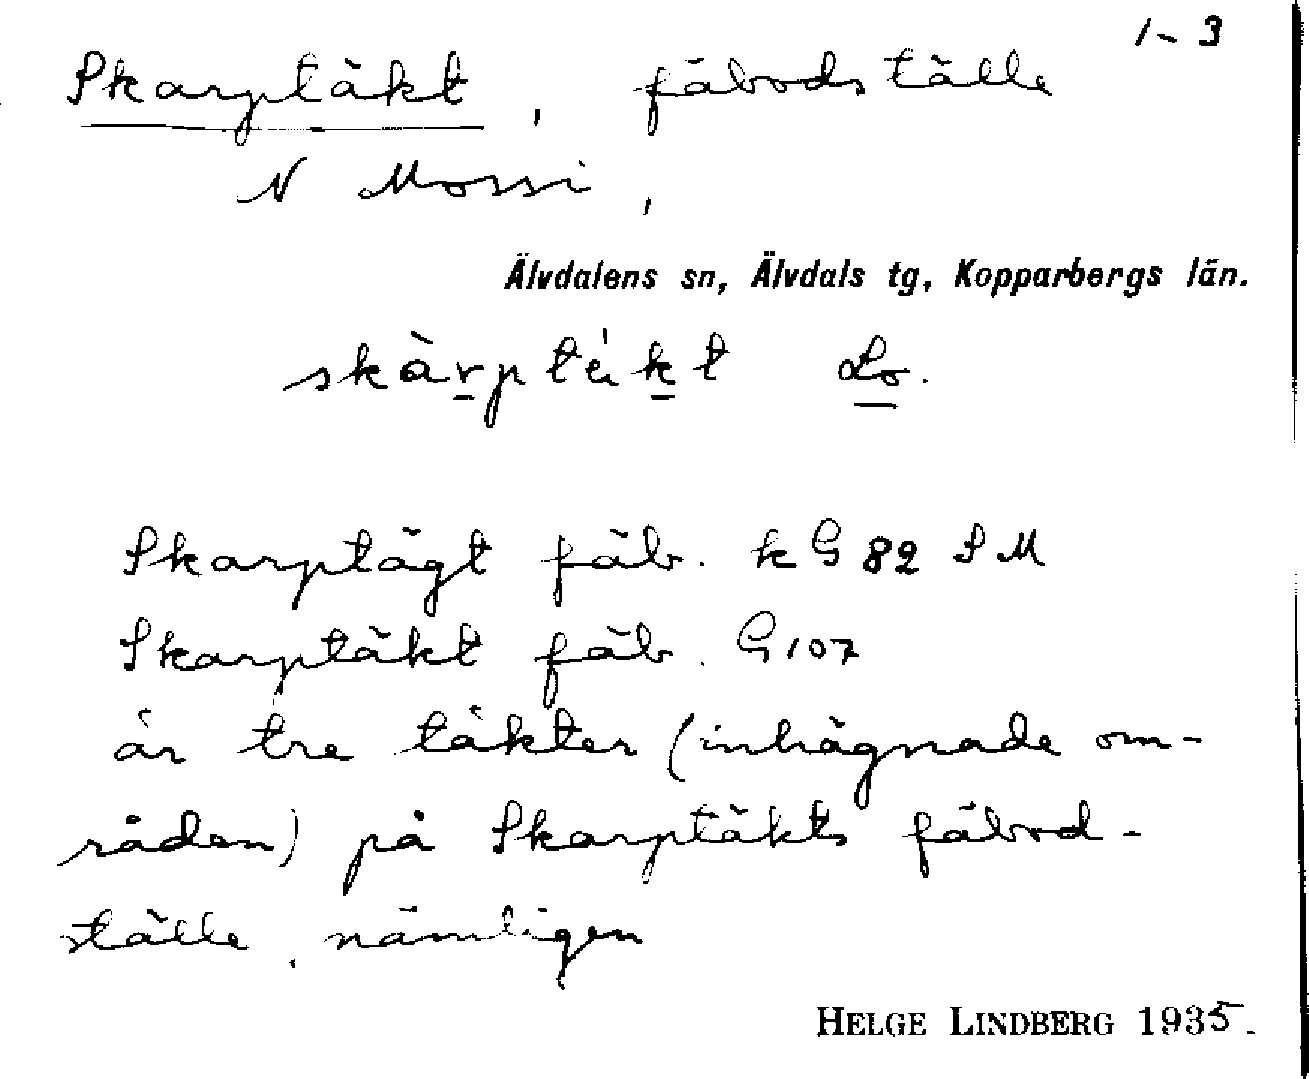 1-3
Skarptäkt, fäbodställe
N Mossi,
Älvdalens sn, Älvdals tg, Kopparbergs län.
skàrptékt Lo.
Skarptägt fäb. k G 82 S M
Skarptäkt fäb. G107
är tre täkter (inhägnade om-
råden) på Skarptäkts fäbod-
ställe, nämligen
HELGE LINDBERG 1935.